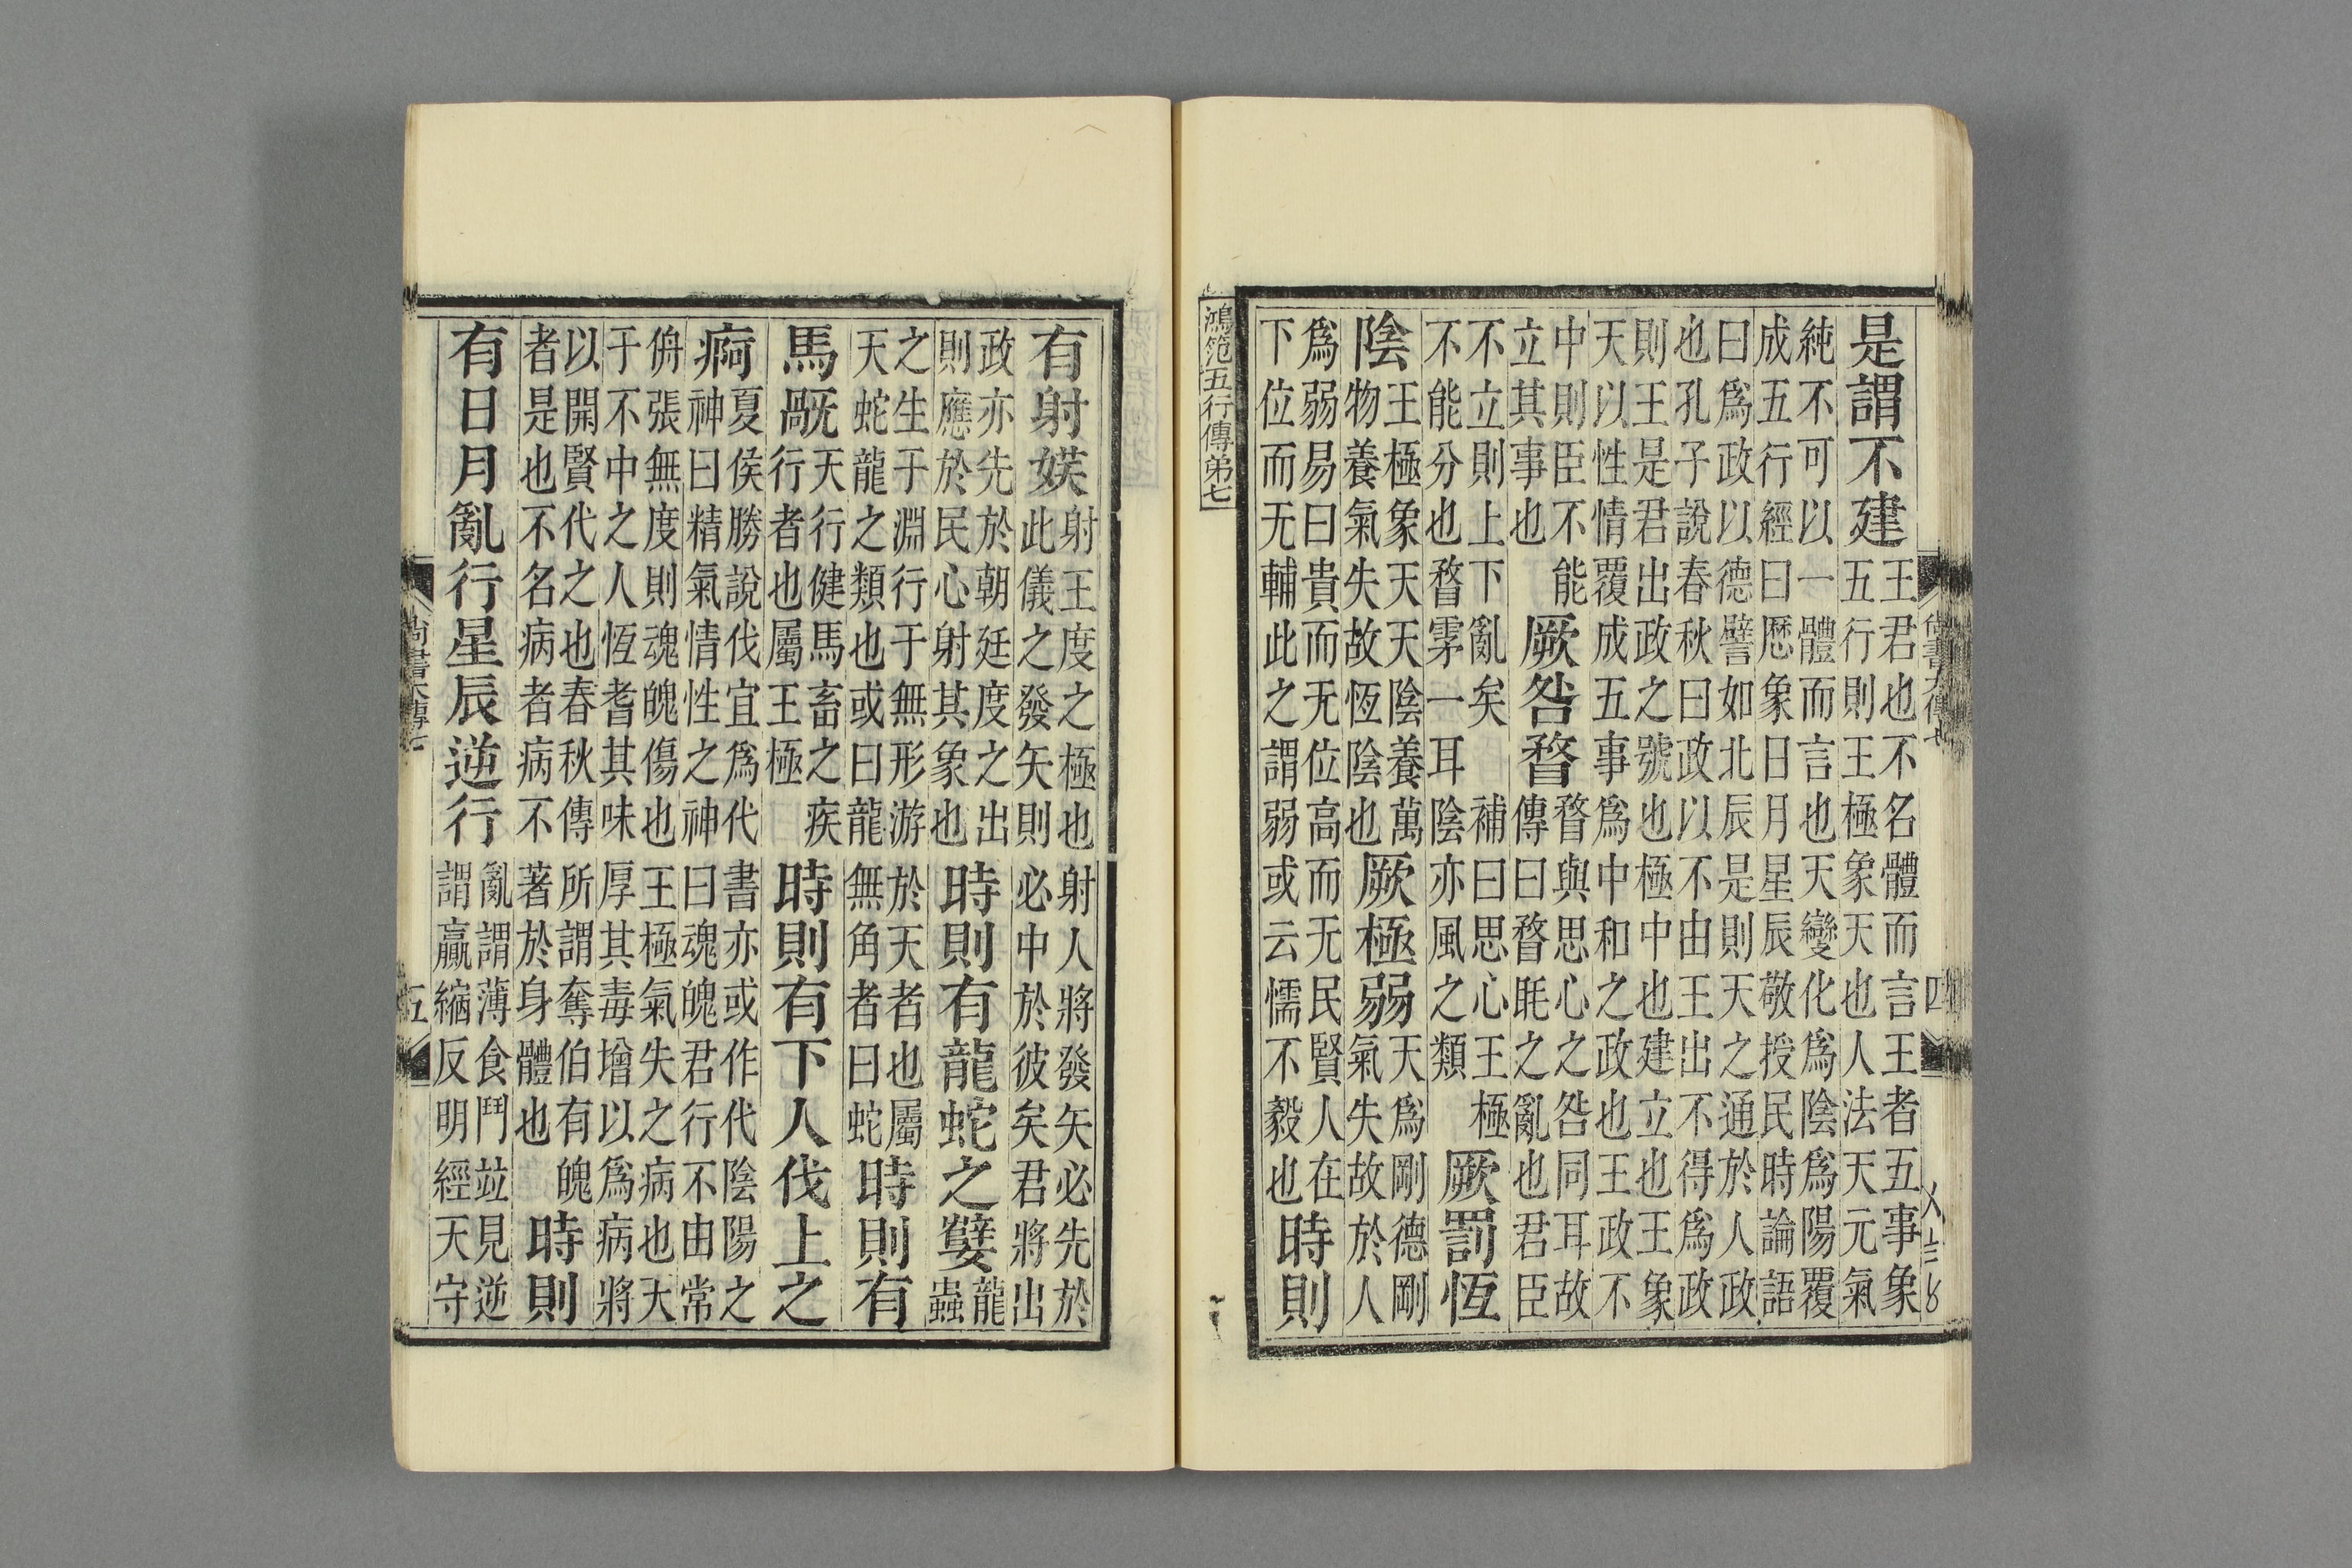 尚書大傳七 四
是謂不建
王君也不名體而言王者五事象
五行則王極象天也人法天元氣
純不可以一體而言也天變化爲陰爲陽覆
成五行經曰厯象日月星辰敬授民時論語
曰爲政以德譬如北辰是則天之通於人政
也孔子說春秋曰政以不由王出不得爲政
則王是君出政之號也極中也建立也王象
天以性情覆成五事爲中和之政也王政不
中則臣不能
立其事也
厥咎瞀
瞀與思心之咎同耳故
傳曰瞀眊之亂也君臣
不立則上下亂矣 補曰思心王極
不能分也瞀雺一耳陰亦風之類
厥罰恆
陰
王極象天天陰養萬
物養氣失故恆陰也
厥極弱
天爲剛德剛
氣失故於人
爲弱易曰貴而无位高而无民賢人在
下位而无輔此之謂弱或云懦不毅也
時則
鴻范五行傳弟七
有射媖
射王度之極也射人將發矢必先於
此儀之發矢則必中於彼矣君將出
政亦先於朝廷度之出
則應於民心射其象也
時則有龍蛇之孽
龍
蟲
之生于淵行于無形游於天者也屬
天蛇龍之類也或曰龍無角者曰蛇
時則有
馬旤
天行健馬畜之疾
行者也屬王極
時則有下人伐上之
痾
夏侯勝說伐宜爲代書亦或作代陰陽之
神曰精氣情性之神曰魂魄君行不由常
侜張無度則魂魄傷也王極氣失之病也天
于不中之人恆耆其味厚其毒增以爲病將
以開賢代之也春秋傳所謂奪伯有魄
者是也不名病者病不著於身體也
時則
有日月亂行星辰逆行
亂謂薄食鬥竝見逆
謂贏縮反明經天守
尚書大傳七 五